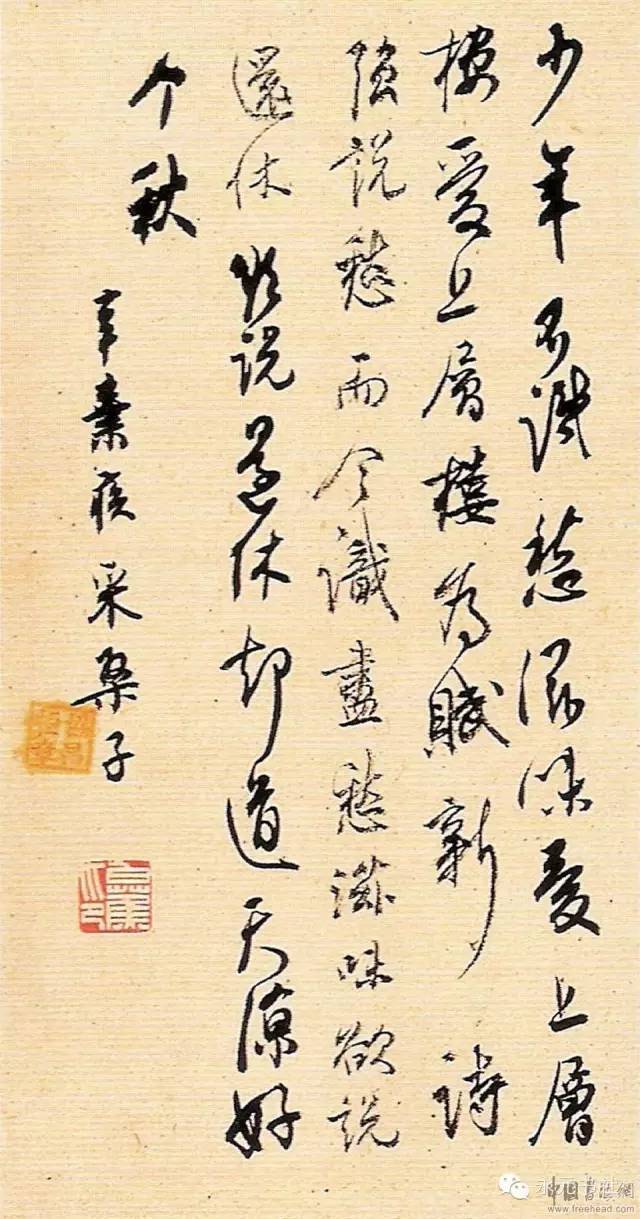 少年不識愁滋味愛上層
樓愛上層樓為賦新詩
強說愁而今識盡愁滋味欲說
還休欲說還休却道天涼好
个秋
辛棄疾采桑子
中国書法網
www.freehead.com